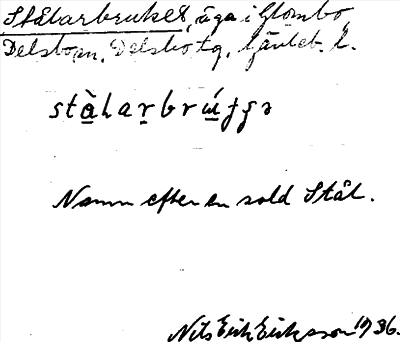 Stålarbruket, äga i Glombo
Delsbo sn, Delsbo tg, Gävleb. l.
stàlaṛbrúʒʒə
Namn efter en sold Stål.
Nils Erik Eriksson 1936.